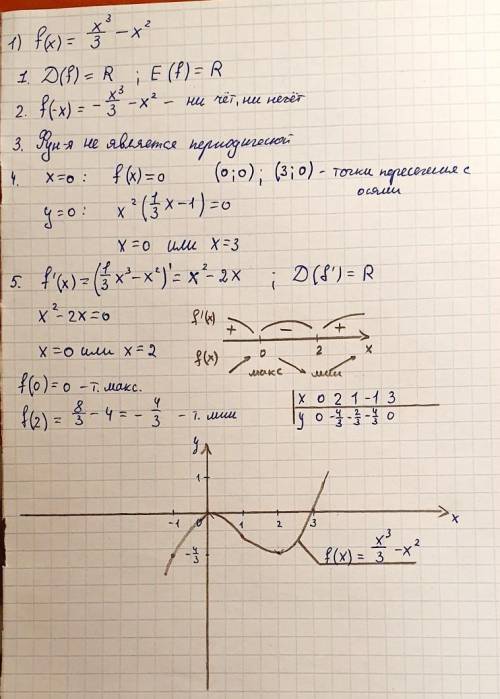 1) f(x) = x³/3 − x²
1. D(f) = R ; E(f) = R
2. f(-x) = −x³/3 − x² – ни чёт, ни нечёт
3. Фун-я не является периодической
4. x=0 : f(x)=0 (0;0) ; (3;0) – точки пересечения с осями
y=0 : x²(1/3 x −1)=0
x=0 или x=3
5. f'(x) = (1/3 x³ − x²)' = x² − 2x ; D(f') = R
x² − 2x = 0
x=0 или x=2
f'(x) + − +
0 2 x
f(x) макс мин
f(0) = 0 – т. макс.
f(2) = 8/3 − 4 = − 4/3 – т. мин
x 0 2 1 −1 3
y 0 −4/3 −2/3 −4/3 0
y
1
-1 0 1 2 3 x
−4/3
f(x) = x³/3 − x²